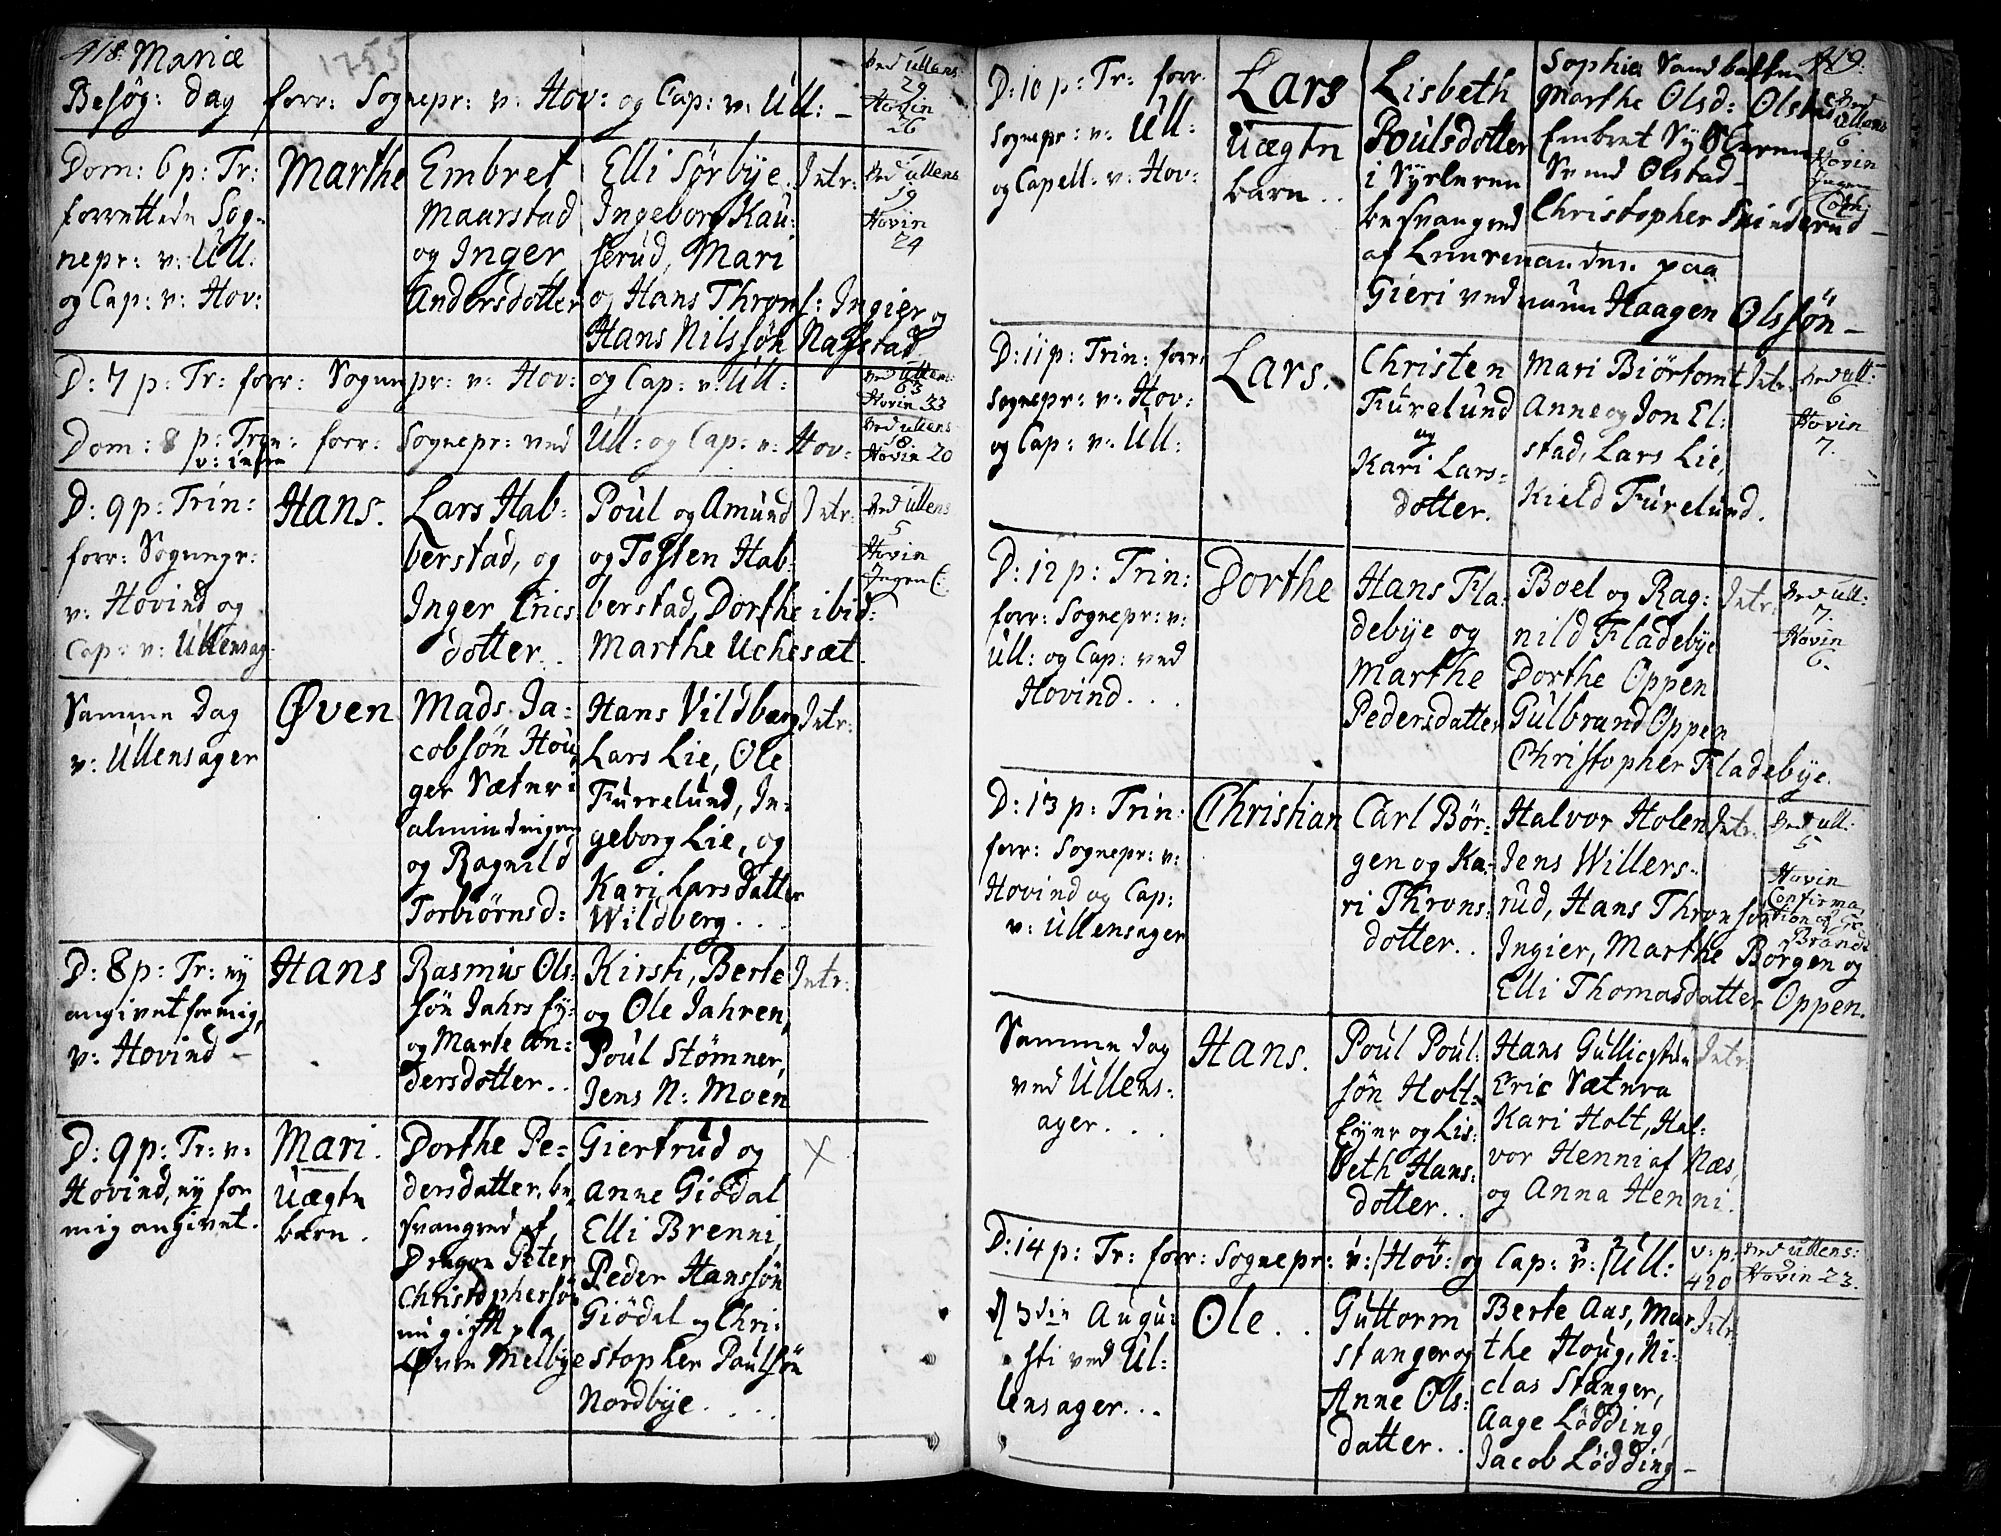 418. Mariæ 1755
Besög: dag forr: Sognepr: v: Hov: og Cap: v: Ull: –
Ved Ullens:
29
Hovin
26
Dom: 6 p: Tr:
forrettede Sog-
nepr: v: Ull:
og Cap: v: Hov:
Marthe
Embret
Maarstad
og Inger
Andersdotter
Elli Sørbye
Ingeborg Kau-
serud, Mari
og Hans Throns: Ingier og
Hans Nilssön Nasstad
Intr:
Ved Ullens:
19
Hovin
24
D: 7 p: Tr: forr: Sognepr: v: Hov: og Cap: v: Ull:
Ved Ullens:
63
Hovin 33
Dom: 8 p: Trin: forr: Sognepr: ved Ull: og Cap: v: Hov:
v: infra
Ved Ullens
8
Hovin 20
D: 9 p: Trin:
forr: Sognepr:
v: Hovind og
Cap: v: Ullensag:
Hans.
Lars Hab-
berstad, og
Inger Erics
dotter. .
Poul og Amund
og Tosten Hab-
berstad, Dorthe ibid:
Marthe Uchesæt.
Intr:
Ved Ullens
5
Hovin
Ingen C:
Samme dag
v: Ullensager
Øven
Mads Ja-
cobsön Hou-
ger Sætner i
almindingen
og Ragnild
Torbiörnsd:
Hans Vildberg
Lars Lie, Ole
Furrelund, In-
geborg Lie, og
Kari Larsdatter
Wildberg. . .
Intr:
D: 8 p: Tr: ny
angivet for mig,
v: Hovind –
Hans
Rasmus Ols-
sön Jahrs Ey:
og Marte An-
dersdotter. .
Kirsti, Berte
og Ole Jahren,
Poul Stömner,
Jens N: Moen
Intr:
D: 9 p: Tr: v:
Hovind, ny for
mig angivet.
Mari.
Uægte
barn.
Dorthe Pe-
dersdatter, be-
svangred af
Dragon Peter
Christophersön
nu gift paa
Øvre Melbye
Giertrud og
Anne Giödal
Elli Brenni,
Peder Hanssön
Giödal og Chri-
stopher Paulsön
Nordbye. . . .
X
419.
D: 10 p: Tr: forr:
Sognepr: v: Ull:
og Capell: v: Hov:
Lars
Uægte
barn. .
Lisbeth
Poulsdotter
i Syrleren
besvangred
af Leuremanden paa
Gieri ved navn Haagen Olssön –
Sophia Sandbakken
Marthe Olsd: Olstad
Embret Syrleren
Svend Olstad –
Christopher Skinderud –
Ved
Ullens
6
Hovin
Ingen
Com:
D: 11 p: Trin: forr:
Sognepr: v: Hov:
og Cap: v: Ull:
Lars.
Christen
Furelund
og
Kari Lars-
dotter.
Mari Biörtomt
Anne og Jon El-
stad, Lars Lie,
Kield Furelund.
Intr:
Ved Ull:
6
Hovin
7.
D: 12 p: Trin:
forr: Sognepr: v:
Ull: og Cap: ved
Hovind. . .
Dorthe
Hans Fla-
debye og
Marthe
Pedersdatter
Boel og Rag-
nild Fladebye
Dorthe Oppen
Gulbrand Oppen
Christopher Fladebye.
Intr:
Ved Ull:
7.
Hovin
6.
D: 13 p: Trin:
forr: Sognepr: v:
Hovind og Cap:
v: Ullensager
Christian
Carl Bör-
gen og Ka-
ri Throns-
dotter. .
Halvor Holen
Jens Willers-
rud, Hans Thronsön
Ingier, Marthe Börgen og
Elli Thomasdatter Oppen.
Intr:
Ved Ull:
5
Hovin
Confirma-
tion af Gr:
Brandt
Samme dag
ved Ullens-
ager. . .
Hans.
Poul Poul-
sön Holt-
Eyer og Lis-
beth Hans-
dotter. .
Hans Gullichstun
Eric Sætnra
Kari Holt, Hal-
vor Henni af Næs,
og Anna Henni.
Intr:
D: 14 p: Tr: forr: Sognepr: v: Hov: og Cap: v: Ull:
v: p:
420
Ved Ullens:
Hovin 23.
d 3die Augu-
sti ved Ul-
lensager. . .
Ole. .
Guttorm
Stanger og
Anne Ols-
datter. .
Berte Aas, Mar-
the Houg, Ni-
clas Stanger,
Aage Lödding,
Jacob Lödding –
Intr: